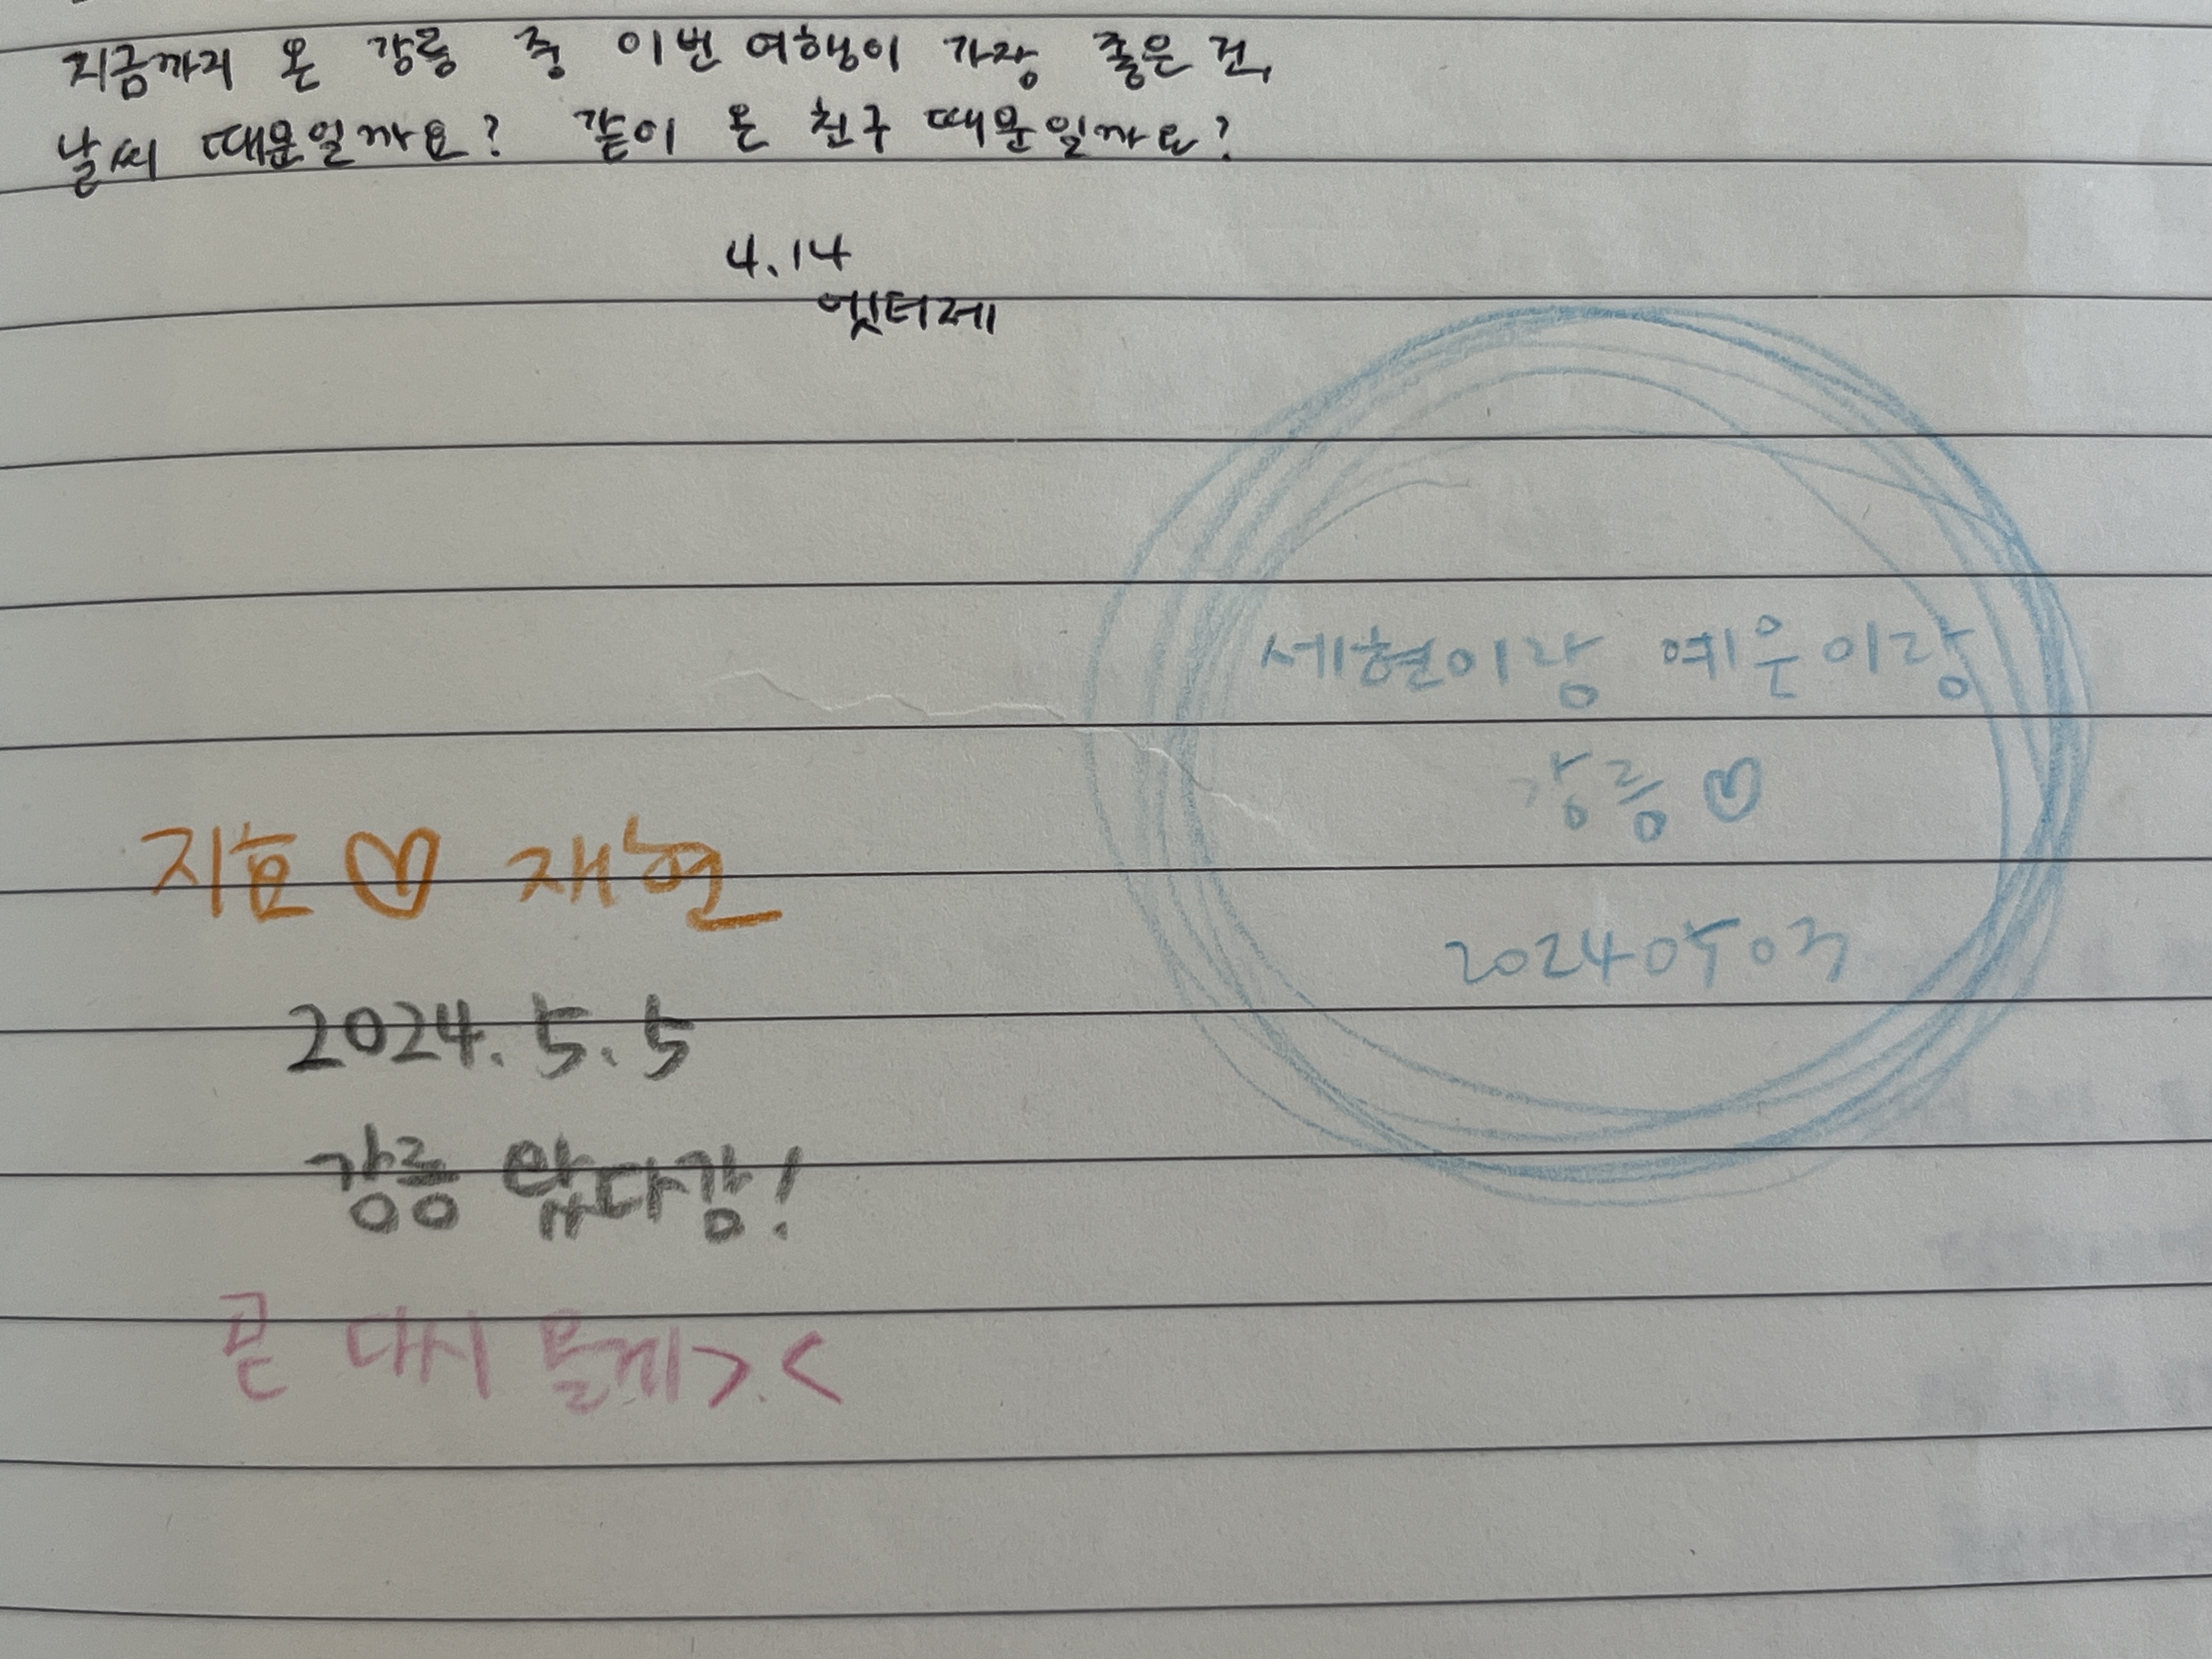 지금까지 온 강릉 중 이번 여행이 가장 좋은 건,
날씨 때문일까요? 같이 온 친구 때문일까요?
4.14
엣터제
세현이랑 예은이랑
강릉♡
20240503
지효♡재현
2024.5.5
강릉 왔다감!
곧 다시 올게>.<